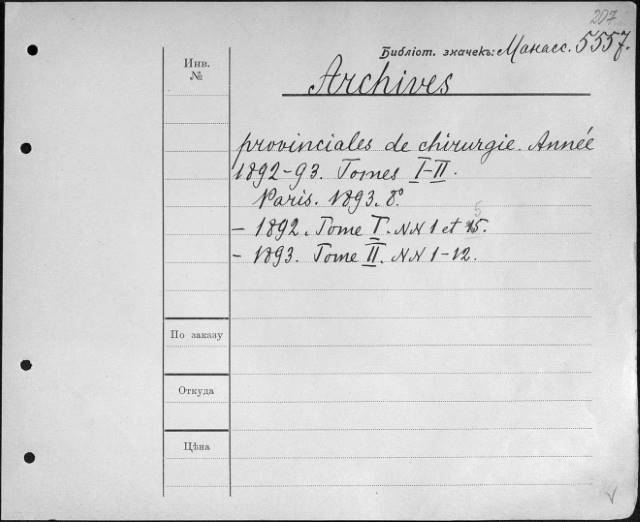 207
Библіот. значекъ: Манасс. 5557.
Инв.
№
Archives
provinciales de chirurgie. Année
1892-93. Tomes I-II.
Paris. 1893. 8°.
– 1892. Tome I. NN 1 et 5.
– 1893. Tome II. NN 1-12.
По заказу
Откуда
Цѣна